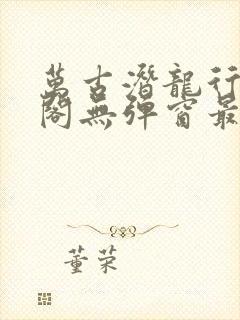 萬古潛龍行
閣無彈窗最
董荣